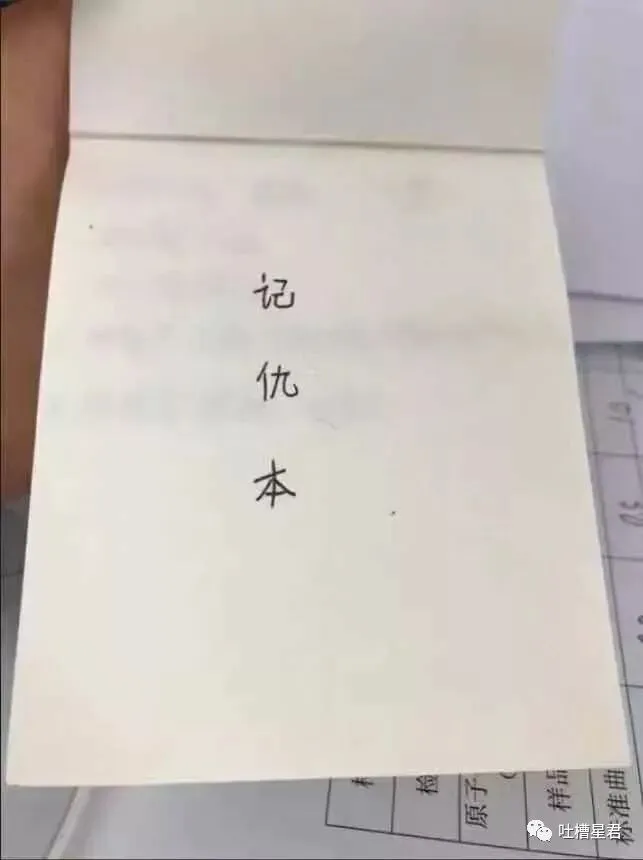 记
仇
本
原子
样品
标准曲
吐槽星君